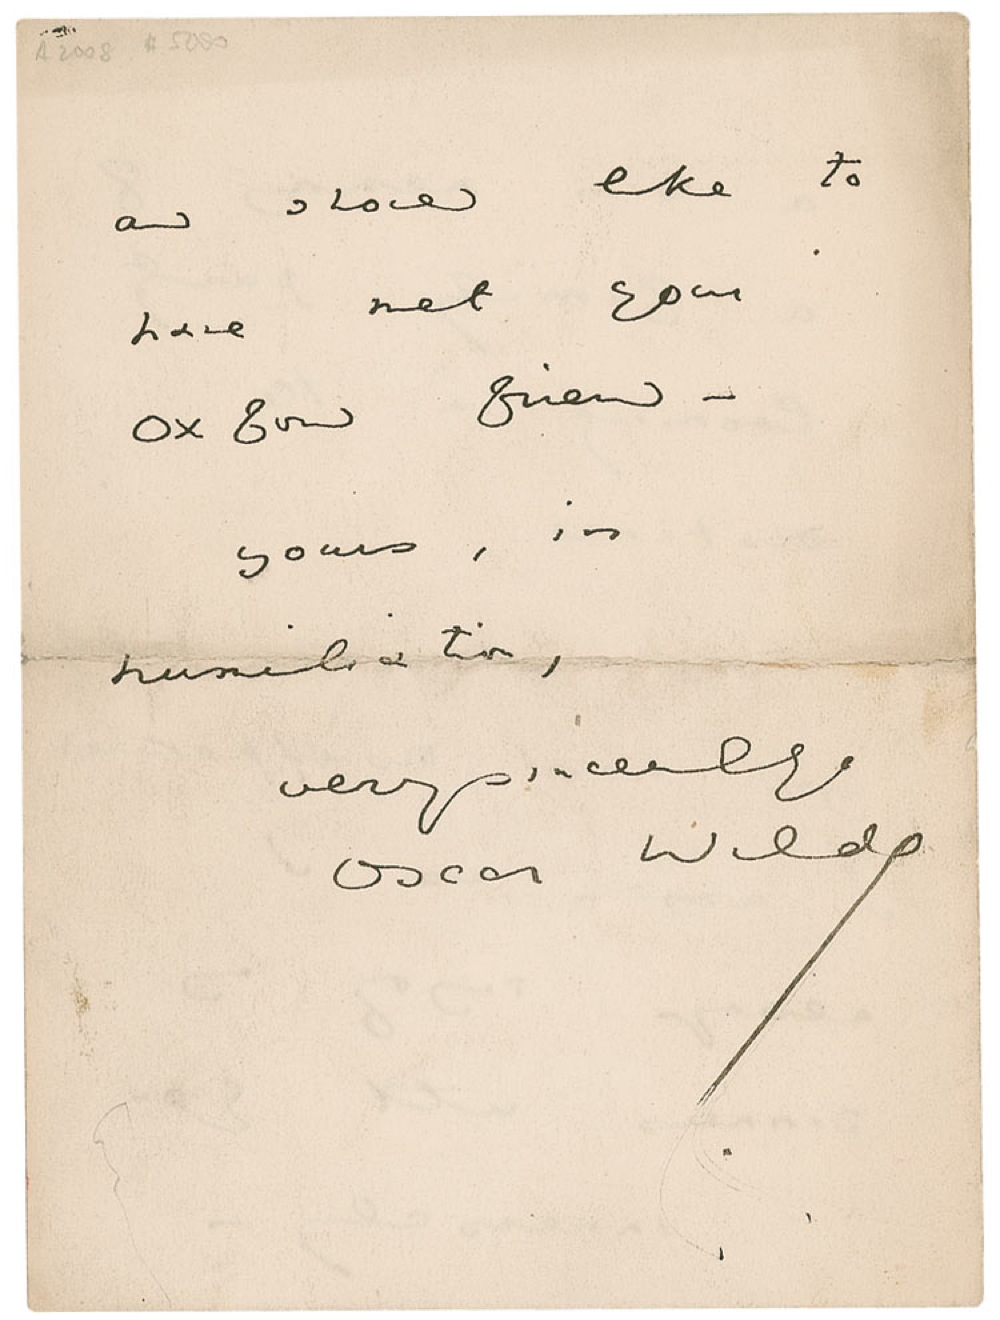 A 2008 $ 5000
and should like to
have met your
Oxford friend –
yours, in
humiliation,
very sincerely
Oscar Wilde